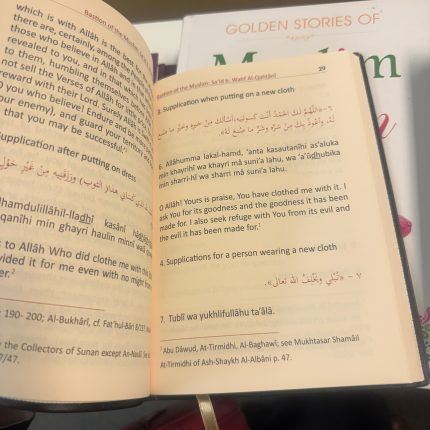 GOLDEN STORIES OF
Muslim
Bastion of the Mus
which is with Allâh is the best fo
there are, certainly, among the Peop
those who believe in Allâh and in
revealed to you, and in that which
to them, humbling themselves bef
not sell the Verses of Allâh for
reward with their Lord. Surely, Allâh is
O you who believe! Endure and be more
our enemy), and guard your territo
that you may be successful.
upplication after putting on dress
lhamdulillâhil-lladhî kasânî
qanîhi min ghayri haulin minnî walâ
s to Allâh Who did clothe me with
vided it for me even with no might from
er.²
190- 200; Al-Bukhârî, cf. Fat'hul-Bâri 8/
the Collectors of Sunan except An-Nasâ'i
7/47.
Bastion of the Muslim Sa'id b. Wahf Al-Qahtâni
29
3. Supplication when putting on a new cloth
٦- «اللَّهُمَّ لَكَ الْحَمْدُ أَنْتَ كَسَوْتَنِيهِ، أَسْأَلُكَ مِنْ خَيْرِهِ وَخَيْرِ مَا صُنِعَ
لَهُ، وَأَعُوذُ بِكَ مِنْ شَرِّهِ وَشَرِّ مَا صُنِعَ لَهُ».
6. Allâhumma lakal-hamd, 'anta kasautanîhi as'aluka
min khayrihî wa khayri mâ suni'a lahu, wa 'a'ûdhubika
min sharri-hî wa sharri mâ suni'a lahu.
O Allâh! Yours is praise, You have clothed me with it. I
ask You for its goodness and the goodness it has been
made for. I also seek refuge with You from its evil and
the evil it has been made for.¹
4. Supplications for a person wearing a new cloth
٧ – «تُبْلِي وَيُخْلِفُ اللهُ تَعَالَى».
7. Tublî wa yukhlifullâhu ta'âlâ.
¹ Abu Dâwud, At-Tirmidhi, Al-Baghawî; see Mukhtasar Shamâil
At-Tirmidhi of Ash-Shaykh Al-Albâni p. 47.